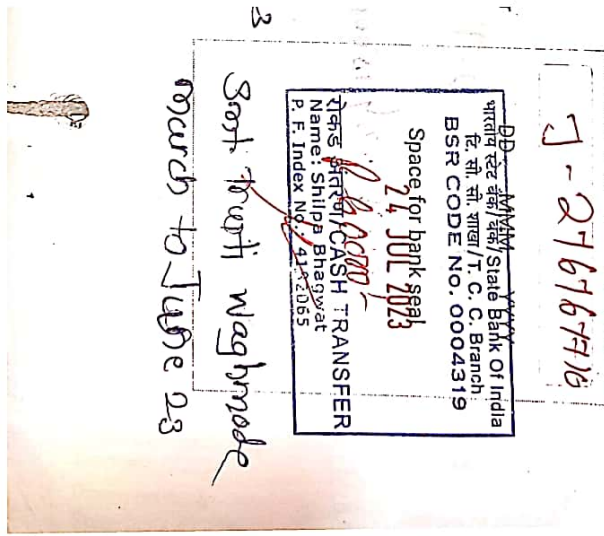 J-276767716
DD MMM YYYY
भारतीय स्टेट बैंक/State Bank Of India
टि. सी. सी. शाखा/T. C. C. Branch
BSR CODE No. 0004319
Space for bank seal
24 JUL 2023
रोकड अंतरण/CASH TRANSFER
Name: Shilpa Bhagwat
P. F. Index No.:
Smt. Trupti Waghmode
March to June 23